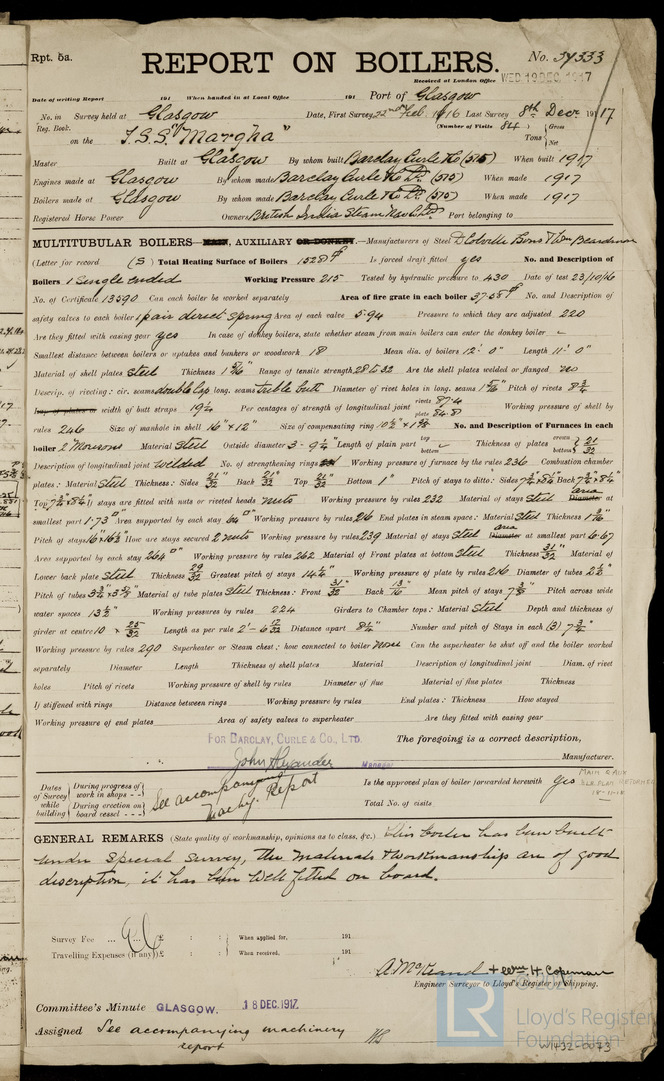 Rpt. 5a.
REPORT ON BOILERS.
No. 37333
Received at London Office WED 19 DEC. 1917
Date of writing Report 191 When handed in at Local Office 191 Port of Glasgow
No. in Survey held at Glasgow Date, First Survey 22nd Feb. 1916 Last Survey 8th Dec. 1917
Reg. Book. (Number of Visits 84) Gross
on the T.S.S. "Margha" Tons Net
Master Built at Glasgow By whom built Barclay Curle & Co (515) When built 1917
Engines made at Glasgow By whom made Barclay Curle & Co Ld. (515) When made 1917
Boilers made at Glasgow By whom made Barclay Curle & Co Ld. (515) When made 1917
Registered Horse Power Owners British India Steam Nav. Co Ld. Port belonging to
MULTITUBULAR BOILERS MAIN, AUXILIARY OR DONKEY.—Manufacturers of Steel D Colville & Sons & Wm Beardmore
(Letter for record (S) Total Heating Surface of Boilers 1528 Is forced draft fitted yes No. and Description of
Boilers 1 Single ended Working Pressure 215 Tested by hydraulic pressure to 430 Date of test 23/10/16
No. of Certificate 13590 Can each boiler be worked separately Area of fire grate in each boiler 37.58 No. and Description of
safety valves to each boiler 1 pair direct spring Area of each valve 5.94 Pressure to which they are adjusted 220
Are they fitted with easing gear yes In case of donkey boilers, state whether steam from main boilers can enter the donkey boiler
Smallest distance between boilers or uptakes and bunkers or woodwork 18 Mean dia. of boilers 12' 0" Length 11' 0"
Material of shell plates Steel Thickness 1 Range of tensile strength 28 to 32 Are the shell plates welded or flanged yes
Descrip. of riveting: cir. seams double lap long. seams treble butt Diameter of rivet holes in long. seams Pitch of rivets 8 3/4
Lap of plates or width of butt straps 19 1/4 Per centages of strength of longitudinal joint rivets 87.4 plate 84.8 Working pressure of shell by
rules 246 Size of manhole in shell 16" x 12" Size of compensating ring No. and Description of Furnaces in each
boiler 2 Morisons Material Steel Outside diameter 3 - 9 1/4" Length of plain part top bottom Thickness of plates crown bottom 21/32
Description of longitudinal joint welded No. of strengthening rings Working pressure of furnace by the rules 236 Combustion chamber
plates: Material Steel Thickness: Sides 21/32 Back 21/32 Top 21/32 Bottom 1" Pitch of stays to ditto: Sides Back
Top If stays are fitted with nuts or riveted heads nuts Working pressure by rules 232 Material of stays Steel area Diameter at
smallest part 1.73 Area supported by each stay 64 Working pressure by rules 216 End plates in steam space: Material Steel Thickness
Pitch of stays How are stays secured 2 nuts Working pressure by rules 239 Material of stays Steel area Diameter at smallest part 6.67
Area supported by each stay 264 Working pressure by rules 262 Material of Front plates at bottom Steel Thickness 31/32 Material of
Lower back plate Steel Thickness 29/32 Greatest pitch of stays 14 1/4 Working pressure of plate by rules 216 Diameter of tubes 2 1/2"
Pitch of tubes Material of tube plates Steel Thickness: Front 31/32 Back 13/16 Mean pitch of stays Pitch across wide
water spaces 13 1/2" Working pressures by rules 224 Girders to Chamber tops: Material Steel Depth and thickness of
girder at centre 10 x 25/32 Length as per rule Distance apart 8 1/4" Number and pitch of Stays in each (3) 7 3/4"
Working pressure by rules 290 Superheater or Steam chest; how connected to boiler None Can the superheater be shut off and the boiler worked
separately Diameter Length Thickness of shell plates Material Description of longitudinal joint Diam. of rivet
holes Pitch of rivets Working pressure of shell by rules Diameter of flue Material of flue plates Thickness
If stiffened with rings Distance between rings Working pressure by rules End plates: Thickness How stayed
Working pressure of end plates Area of safety valves to superheater Are they fitted with easing gear
FOR BARCLAY, CURLE & CO., LTD. The foregoing is a correct description,
John Alexander Manager Manufacturer.
Dates of Survey while building During progress of work in shops - - During erection on board vessel - - -
See accompanying Machy. Report
Is the approved plan of boiler forwarded herewith yes
MAIN & AUX
BLR. PLAN RETURNED
Total No. of visits
GENERAL REMARKS (State quality of workmanship, opinions as to class, &c.) This boiler has been built
under Special Survey, the materials & workmanship are of good
discription, it has been well fitted on board.
Survey Fee ... £ : : When applied for, 191
Travelling Expenses (if any) £ : : When received, 191
A McKeand + Wm. H. Copeman
Engineer Surveyor to Lloyd's Register of Shipping.
Committee's Minute GLASGOW. 18 DEC. 1917
Assigned See accompanying machinery
report
LR
© 2021
Lloyd's Register
Foundation
W1432-0073